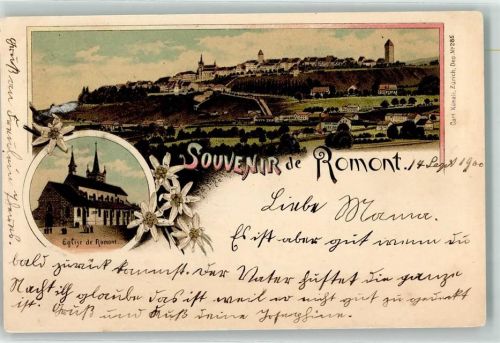 SOUVENIR de Romont.
14 Sept 1900
Eglise de Romont.
Carl Künzli, Zürich, Dep. No 285
Liebe Mama.
Es ist aber gut wenn du
bald zurück kommst. Der Vater hustet die ganze
Nacht ich glaube das ist weil er nicht gut zu gedeckt
ist. Gruß und Kuß deine Josephine.